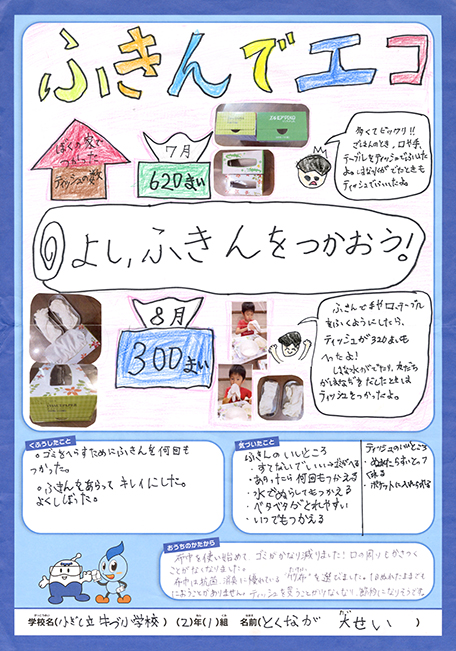 ふきんでエコ
ぼくが家で
つかった
ティッシュの数
7月
620まい
多くてビックリ!!
ごはんのとき、口や手、
テーブルをティッシュでふいた
よ。はなが出たときも
ティッシュでふいたよ。
◎よし、ふきんをつかおう!
8月
300まい
ふきんで手や口、テーブル
をふくようにしたら、
ティッシュが320まいも
へったよ!
ティッシュをつかったよ。
くふうしたこと
。ゴミをへらすためにふきんを何回も
つかった。
。ふきんをあらってキレイにした。
よくしぼった。
気づいたこと
ふきんのいいところ
・すてないでいい
・あらったら何回もつかえる
・水でぬらしてもつかえる
・ベタベタがとれやすい
・いつでもつかえる
ティッシュのいいところ
・ポケットに入れられる
おうちのかたから
布巾を使い始めて、ゴミがかなり減りました!口の周りもかさつく
ことがなくなりました。
布巾は抗菌、消臭に優れている
を選びました。
におうことがありません。ティッシュを買うことが少なくなり、節約になりそうです。
学校名( 小学校 ) (2)年(1)組 名前(とくなが 大せい )